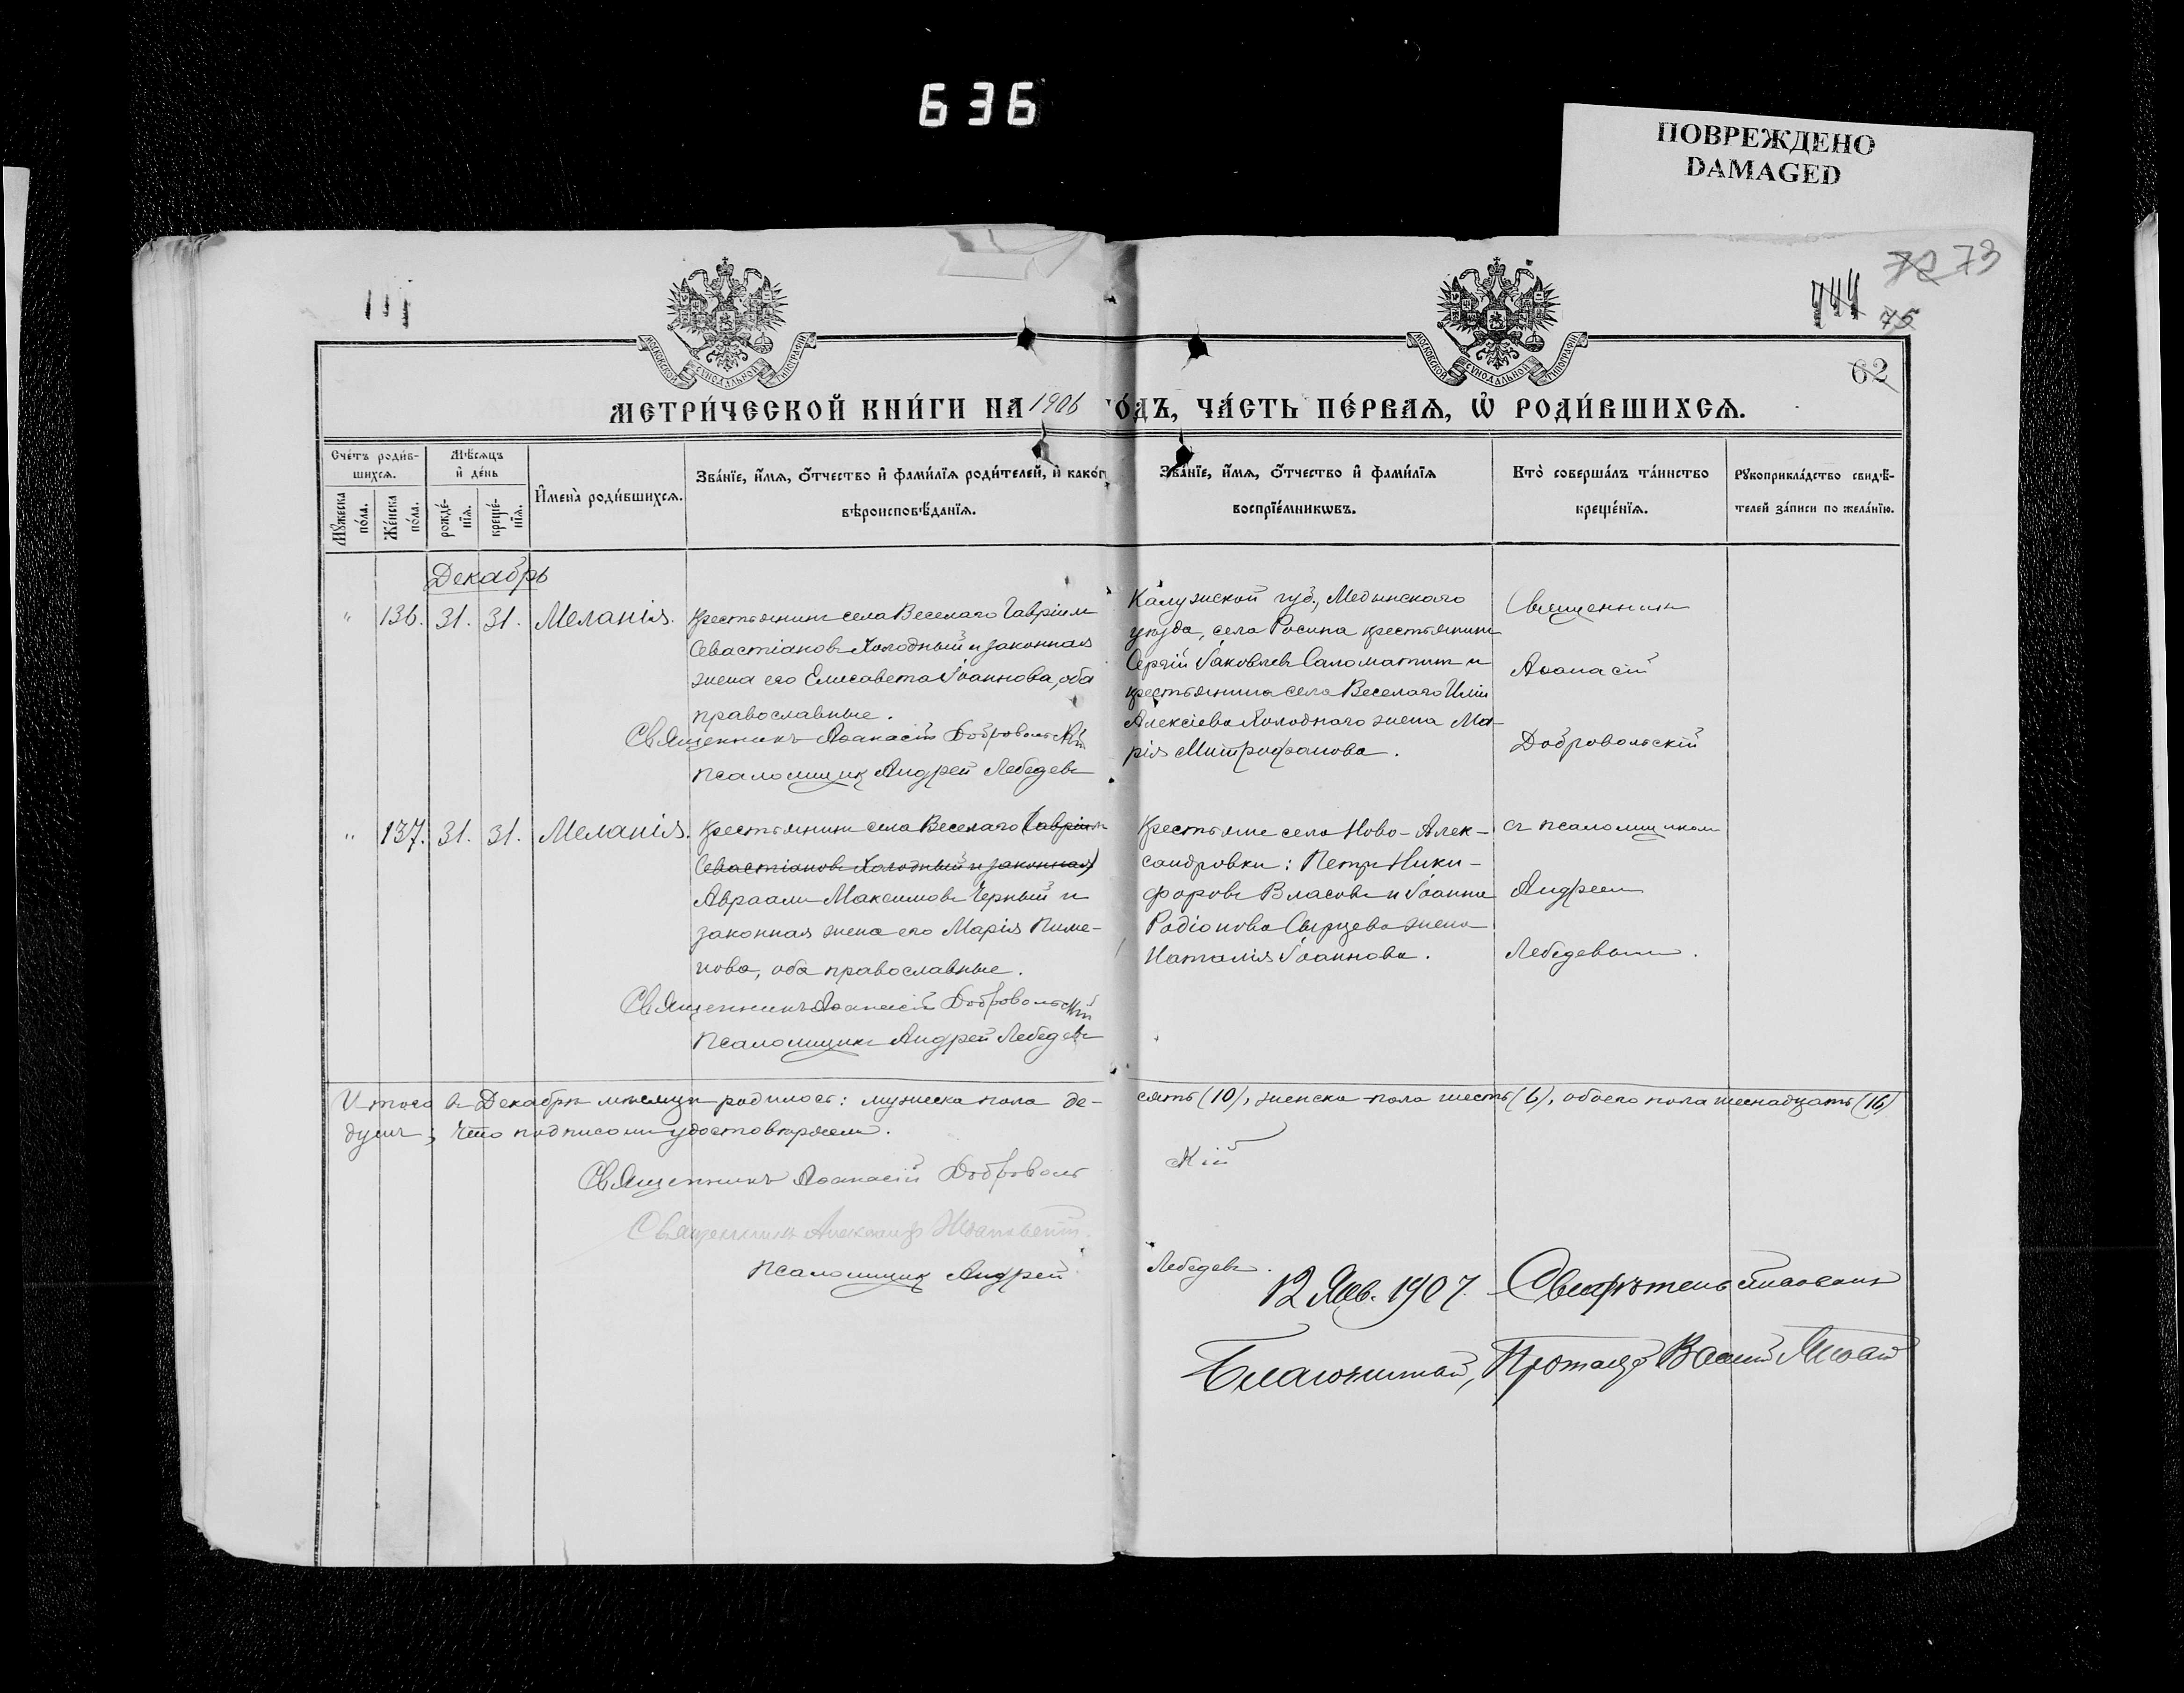 636
ПОВРЕЖДЕНО
DAMAGED
72 73
75
62
МОСКОВСКОЙ СѴНОДАЛЬНОЙ ТИПОГРАФІИ
МОСКОВСКОЙ СѴНОДАЛЬНОЙ ТИПОГРАФІИ
МЕТРИ́ЧЕСКОЙ КНИ́ГИ НА 1906 ГО́ДЪ, ЧА́СТЬ ПЕ́РВАѦ, Ѡ҆ РОДИ́ВШИХСѦ.
Сче́тъ роди́в-
шихсѧ.
Мꙋ́жеска по́ла.
Же́нска по́ла.
Мѣ́сѧцъ
и҆ де́нь
рожде́-
нїѧ.
креще́-
нїѧ.
И҆мена̀ роди́вшихсѧ.
Зва́нїе, и҆́мѧ, ѻ҆́тчество и҆ фами́лїѧ роди́телей, и҆ како́г
вѣроисповѣ́данїѧ.
Зва́нїе, и҆́мѧ, ѻ҆́тчество и҆ фами́лїѧ
воспрїе́мникѡвъ.
Кто̀ соверша́лъ та́инство
креще́нїѧ.
Рꙋкоприкла́дство свидѣ́-
телей за́писи по жела́нїю.
Декабрь
" 136. 31. 31. Меланія.
Крестьянинъ села Веселаго Гавріилъ
Севастіановъ Холодный и законная
жена его Елисавета Іоаннова, оба
православные.
Священникъ Аѳанасій Добровольскій
Псаломщикъ Андрей Лебедевъ
Калужской губ., Медынскаго
уѣзда, села Росина крестьянинъ
Сергій Іаковлевъ Саломатинъ и
крестьянина села Веселаго Иліи
Алексіева Холоднаго жена Ма-
рія Митрофанова.
Священникъ
Аѳанасій
Добровольскій
" 137. 31. 31. Меланія.
Крестьянинъ села Веселаго (Гавріилъ
Севастіановъ Холодный и законная)
Авраамъ Максимовъ Черный и
законная жена его Марія Пиме-
нова, оба православные.
Священникъ Аѳанасій Добровольскій
Псаломщикъ Андрей Лебедевъ
Крестьяне села Ново-Алек-
сандровки: Петръ Ники-
форовъ Власовъ и Іоанна
Родіонова Сырцева жена
Наталія Іоаннова.
съ псаломщикомъ
Андреемъ
Лебедевымъ.
Итого въ Декабрѣ мѣсяцѣ родилось: мужеска пола де-
сять (10), женска пола шесть (6), обоего пола шеснадцать (16)
душъ; что подписомъ удостовѣряемъ.
Священникъ Аѳанасій Доброволь
скій
Священникъ Александръ
Псаломщикъ Андрей
Лебедевъ.
12 Янв. 1907. Свидѣтельствовалъ
Благочинный,